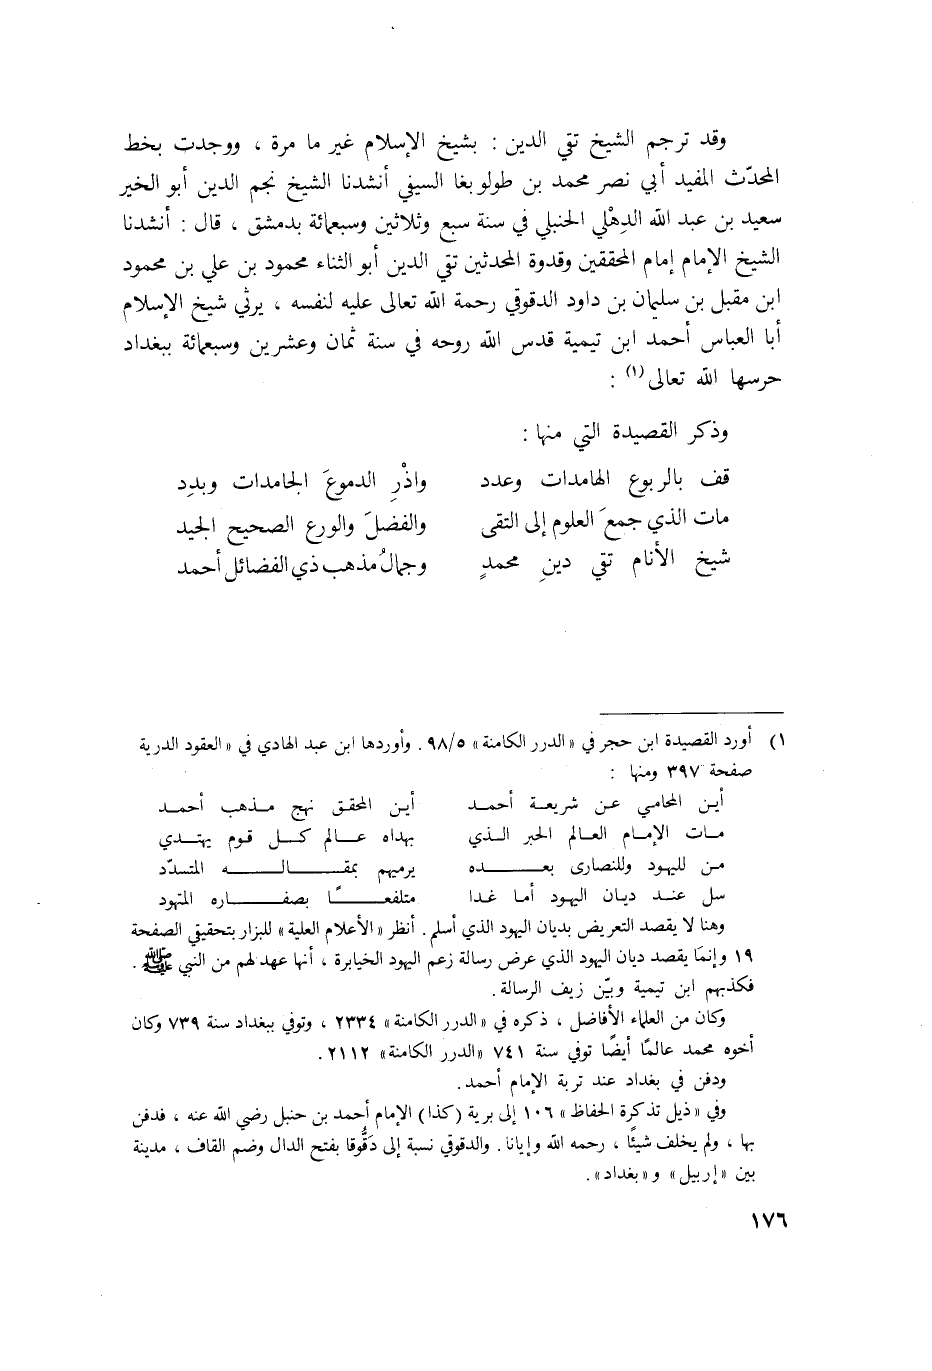 وقد ترجم الشيخ تقي الدين : بشيخ الإسلام غير ما مرة ، ووجدت بخط
المحدّث المفيد أبي نصر محمد بن طولوبغا السيفي أنشدنا الشيخ نجم الدين أبو الخير
سعيد بن عبد الله الدِهْلي الحنبلي في سنة سبع وثلاثين وسبعمائة بدمشق ، قال : أنشدنا
الشيخ الإمام إمام المحققين وقدوة المحدثين تقي الدين أبو الثناء محمود بن علي بن محمود
ابن مقبل بن سليمان بن داود الدقوقي رحمة الله تعالى عليه لنفسه ، يرثي شيخ الإسلام
أبا العباس أحمد ابن تيمية قدس الله روحه في سنة ثمان وعشرين وسبعمائة ببغداد
حرسها الله تعالى(١) :
وذكر القصيدة التي منها :
قف بالربوع الهامدات وعدد واذْرِ الدموعَ الجامدات وبدِد
مات الذي جمعَ العلوم إلى التقى والفضلَ والورع الصحيح الجيد
شيخ الأنام تقي دينِ محمدٍ وجمالُ مذهب ذي الفضائل أحمد
١) أورد القصيدة ابن حجر في «الدرر الكامنة» ٩٨/٥. وأوردها ابن عبد الهادي في «العقود الدرية
صفحة ٣٩٧ ومنها :
أين المحامي عن شريعة أحمد أين المحقق نهج مذهب أحمد
مات الإمام العالم الحبر الذي بهداه عالم كل قوم يهتدي
من لليهود وللنصارى بعده يرميهم بمقاله المتسدّد
سل عند ديان اليهود أما غدا متلفعًا بصفاره المتهود
وهنا لا يقصد التعريض بديان اليهود الذي أسلم. أنظر «الأعلام العلية» للبزار بتحقيقي الصفحة
١٩ وإنما يقصد ديان اليهود الذي عرض رسالة زعم اليهود الخيابرة ، أنها عهد لهم من النبي ﷺ .
فكذبهم ابن تيمية وبيّن زيف الرسالة.
وكان من العلماء الأفاضل ، ذكره في «الدرر الكامنة» ٢٣٣٤ ، وتوفي ببغداد سنة ٧٣٩ وكان
أخوه محمد عالمًا أيضًا توفي سنة ٧٤١ «الدرر الكامنة» ٢١١٢.
ودفن في بغداد عند تربة الإمام أحمد.
وفي «ذيل تذكرة الحفاظ» ١٠٦ إلى برية (كذا) الإمام أحمد بن حنبل رضي الله عنه ، فدفن
بها ، ولم يخلف شيئًا ، رحمه الله وإيانا. والدقوقي نسبة إلى دَقُوقا بفتح الدال وضم القاف ، مدينة
بين «إربيل» و«بغداد».
١٧٦